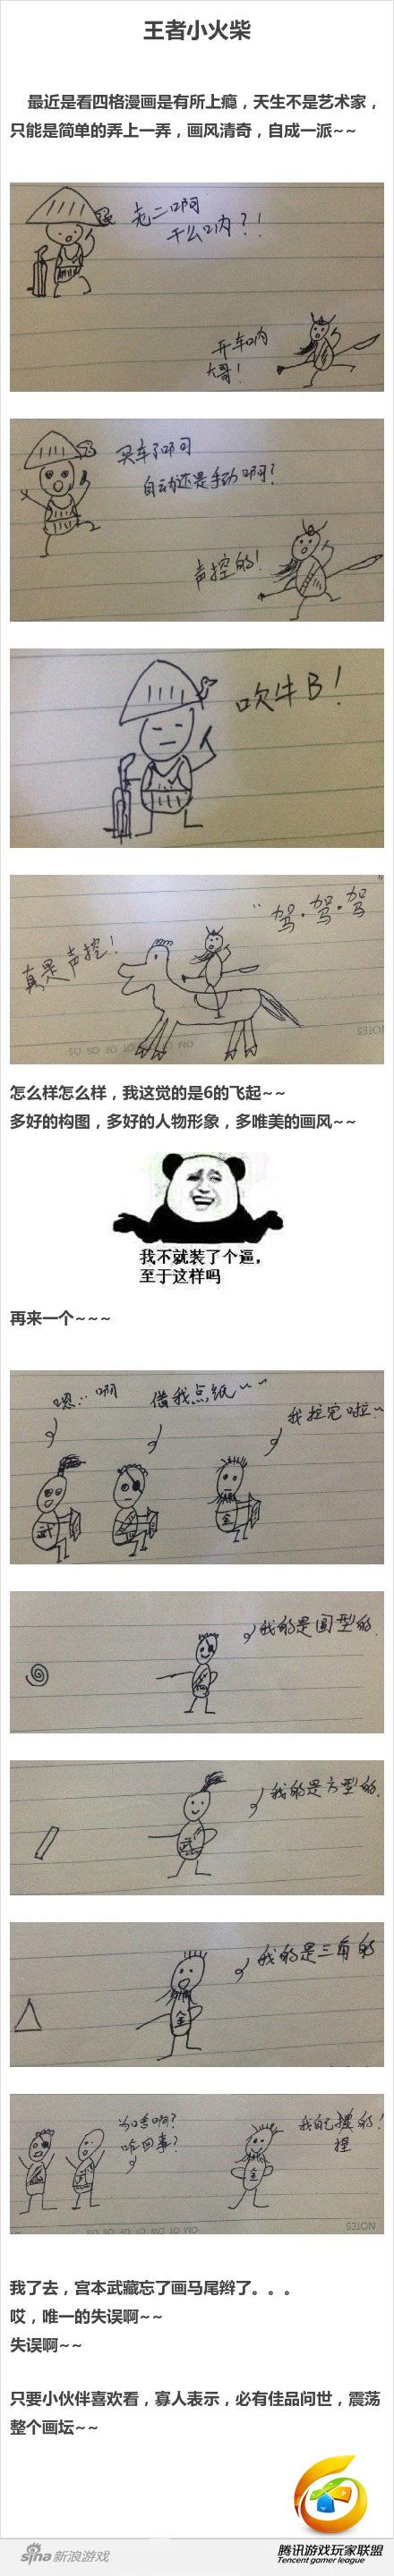 王者小火柴
最近是看四格漫画是有所上瘾，天生不是艺术家，
只能是简单的弄上一弄，画风清奇，自成一派~~
老二啊
干么呐?!
开车呐
大哥!
买车了啊
自动还是手动啊?
声控的!
吹牛B!
"驾·驾·驾"
真是声控!
NOTES
怎么样怎么样，我这觉的是6的飞起~~
多好的构图，多好的人物形象，多唯美的画风~~
我不就装了个逼，
至于这样吗
再来一个~~~
嗯··啊
借我点纸~~
我拉完啦~
武
金
我的是圆型的.
我的是方型的.
武
我的是三角的
金
为啥啊?
咋回事?
我自己捏的!
捏
武
金
NOTES
我了去，宫本武藏忘了画马尾辫了。。。
哎，唯一的失误啊~~
失误啊~~
只要小伙伴喜欢看，寡人表示，必有佳品问世，震荡
整个画坛~~
sina新浪游戏
腾讯游戏玩家联盟
Tencent gamer league